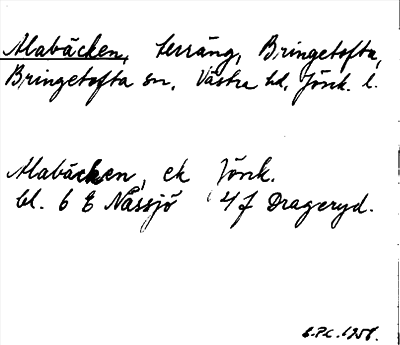 Alabäcken, terräng, Bringetofta,
Bringetofta sn, Västra hd, Jönk. l.
Alabäcken, ek Jönk.
bl. 6 E Nässjö 4 f Drageryd.
1958.